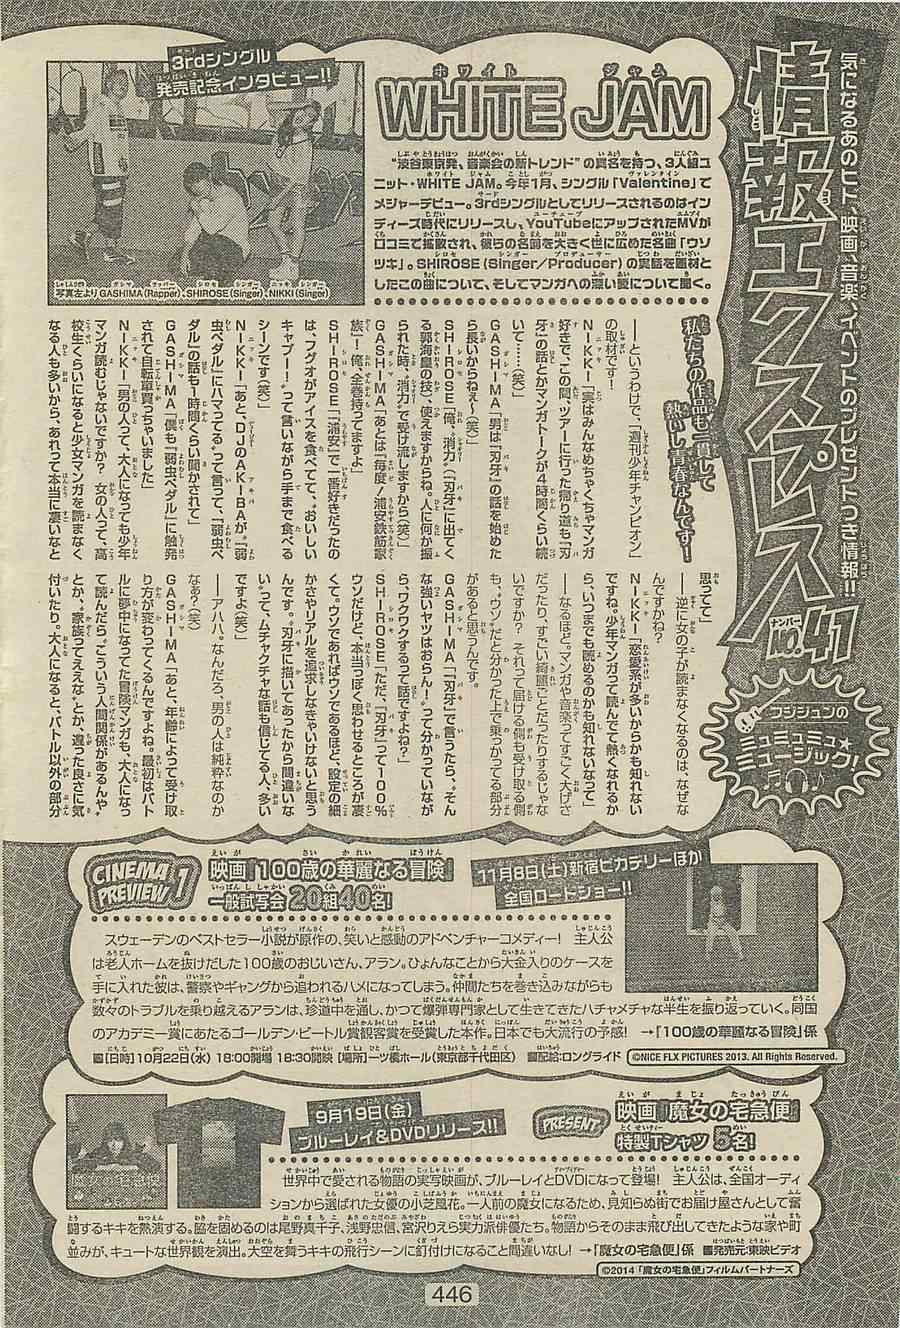 気になるあのヒト、映画、音楽、イベントのプレゼントつき情報!!
情報エクスプレス
No.41
フジジュンの
ミュミュミュ★
ミュージック!
3rdシングル
発売記念インタビュー!!
写真左よりGASHIMA(Rapper)、SHIROSE(Singer)、NIKKI(Singer)
WHITE JAM
“渋谷東京発、音楽会の新トレンド”の異名を持つ、3人組ユ
ニット・WHITE JAM。今年1月、シングル「Valentine」で
メジャーデビュー。3rdシングルとしてリリースされるのはイン
ディーズ時代にリリースし、YouTubeにアップされたMVが
口コミで拡散され、彼らの名前を大きく世に広めた名曲「ウソ
ツキ」。SHIROSE(Singer/Producer)の実話を題材と
したこの曲について、そしてマンガへの深い愛について聞く。
私たちの作品も一貫して
熱いし青春なんです!
――というわけで、「週刊少年チャンピオン」
の取材です!
NIKKI「実はみんなめちゃくちゃマンガ
好きで、この間、ツアーに行った帰り道も『刃
牙』の話とかマンガトークが4時間くらい続
いて……(笑)」
GASHIMA「男は『刃牙』の話を始めた
ら長いからねぇ〜(笑)」
SHIROSE「俺、“消力”(『刃牙』に出てく
る郭海皇の技)、使えますからね。人に何か振
られた時、“消力”で受け流しますから(笑)」
GASHIMA「あとは『毎度!浦安鉄筋家
族』!俺、全巻持ってますよ」
SHIROSE「『浦安』で一番好きだったの
は、フグオがアイスを食べてて、“おいしい
キャプー!”って言いながら手まで食べる
シーンです(笑)」
NIKKI「あと、DJのAKIBAが、『弱
虫ペダル』にハマってる”って言って、『弱虫ペ
ダル』の話も1時間くらい聞かされて」
GASHIMA「僕も『弱虫ペダル』に触発
されて自転車買っちゃいました」
NIKKI「男の人って、大人になっても少年
マンガ読むじゃないですか? 女の人って、高
校生くらいになると少女マンガを読まなく
なる人も多いから、あれって本当に凄いなと
思ってて」
――逆に女の子が読まなくなるのは、なぜな
んですかね?
NIKKI「恋愛系が多いからかも知れない
ですね。少年マンガって読んでて熱くなれるか
ら、いつまでも読めるのかも知れないなって」
――なるほど。マンガや音楽ってすごく大げさ
だったり、すごい綺麗ごとだったりするじゃな
いですか? それって届ける側も受け取る側
も、“ウソ”だと分かった上で乗っかってる部分
があると思うんです。
GASHIMA「『刃牙』で言うたら、“そん
な強いヤツはおらん!”って分かっていなが
ら、ワクワクするって話ですよね?」
SHIROSE「ただ、『刃牙』って100%
ウソだけど、本当っぽく思わせるところが凄
くて。ウソであればウソであるほど、設定の細
かさやリアルを追求しなきゃいけないと思う
んです。“刃牙に描いてあったから間違いな
い”って、ムチャクチャな話も信じてる人、多い
ですよ(笑)」
――アハハ。なんだろ、男の人は純粋なのか
なぁ?(笑)
GASHIMA「あと、年齢によって受け取
り方が変わってくるんですよね。最初はバト
ルに夢中になってた冒険マンガも、大人になっ
て読んだら、“こういう人間関係があるんや”
とか、“家族ってええな”とか、違った良さに気
付いたり。大人になると、バトル以外の部分
CINEMA PREVIEW 1
映画『100歳の華麗なる冒険』
一般試写会20組40名!
11月8日(土)新宿ピカデリーほか
全国ロードショー!!
スウェーデンのベストセラー小説が原作の、笑いと感動のアドベンチャーコメディー! 主人公
は老人ホームを抜けだした100歳のおじいさん、アラン。ひょんなことから大金入りのケースを
手に入れた彼は、警察やギャングから追われるハメになってしまう。仲間たちを巻き込みながらも
数々のトラブルを乗り越えるアランは、珍道中を通し、かつて爆弾専門家として生きてきたハチャメチャな半生を振り返っていく。同国
のアカデミー賞にあたるゴールデン・ビートル賞観客賞を受賞した本作。日本でも大流行の予感! →「100歳の華麗なる冒険」係
■[日時]10月22日(水) 18:00開場 18:30開映 [場所]一ツ橋ホール(東京都千代田区) ■配給:ロングライド
©NICE FLX PICTURES 2013. All Rights Reserved.
9月19日(金)
ブルーレイ&DVDリリース!!
PRESENT
映画『魔女の宅急便』
特製Tシャツ 5名!
世界中で愛される物語の実写映画が、ブルーレイとDVDになって登場! 主人公は、全国オーディ
ションから選ばれた女優の小芝風花。一人前の魔女になるため、見知らぬ街でお届け屋さんとして奮
闘するキキを熱演する。脇を固めるのは尾野真千子、浅野忠信、宮沢りえら実力派俳優たち。物語からそのまま飛び出してきたような家や町
並みが、キュートな世界観を演出。大空を舞うキキの飛行シーンに釘付けになること間違いなし! →「魔女の宅急便」係 ■発売元:東映ビデオ
©2014「魔女の宅急便」フィルムパートナーズ
446